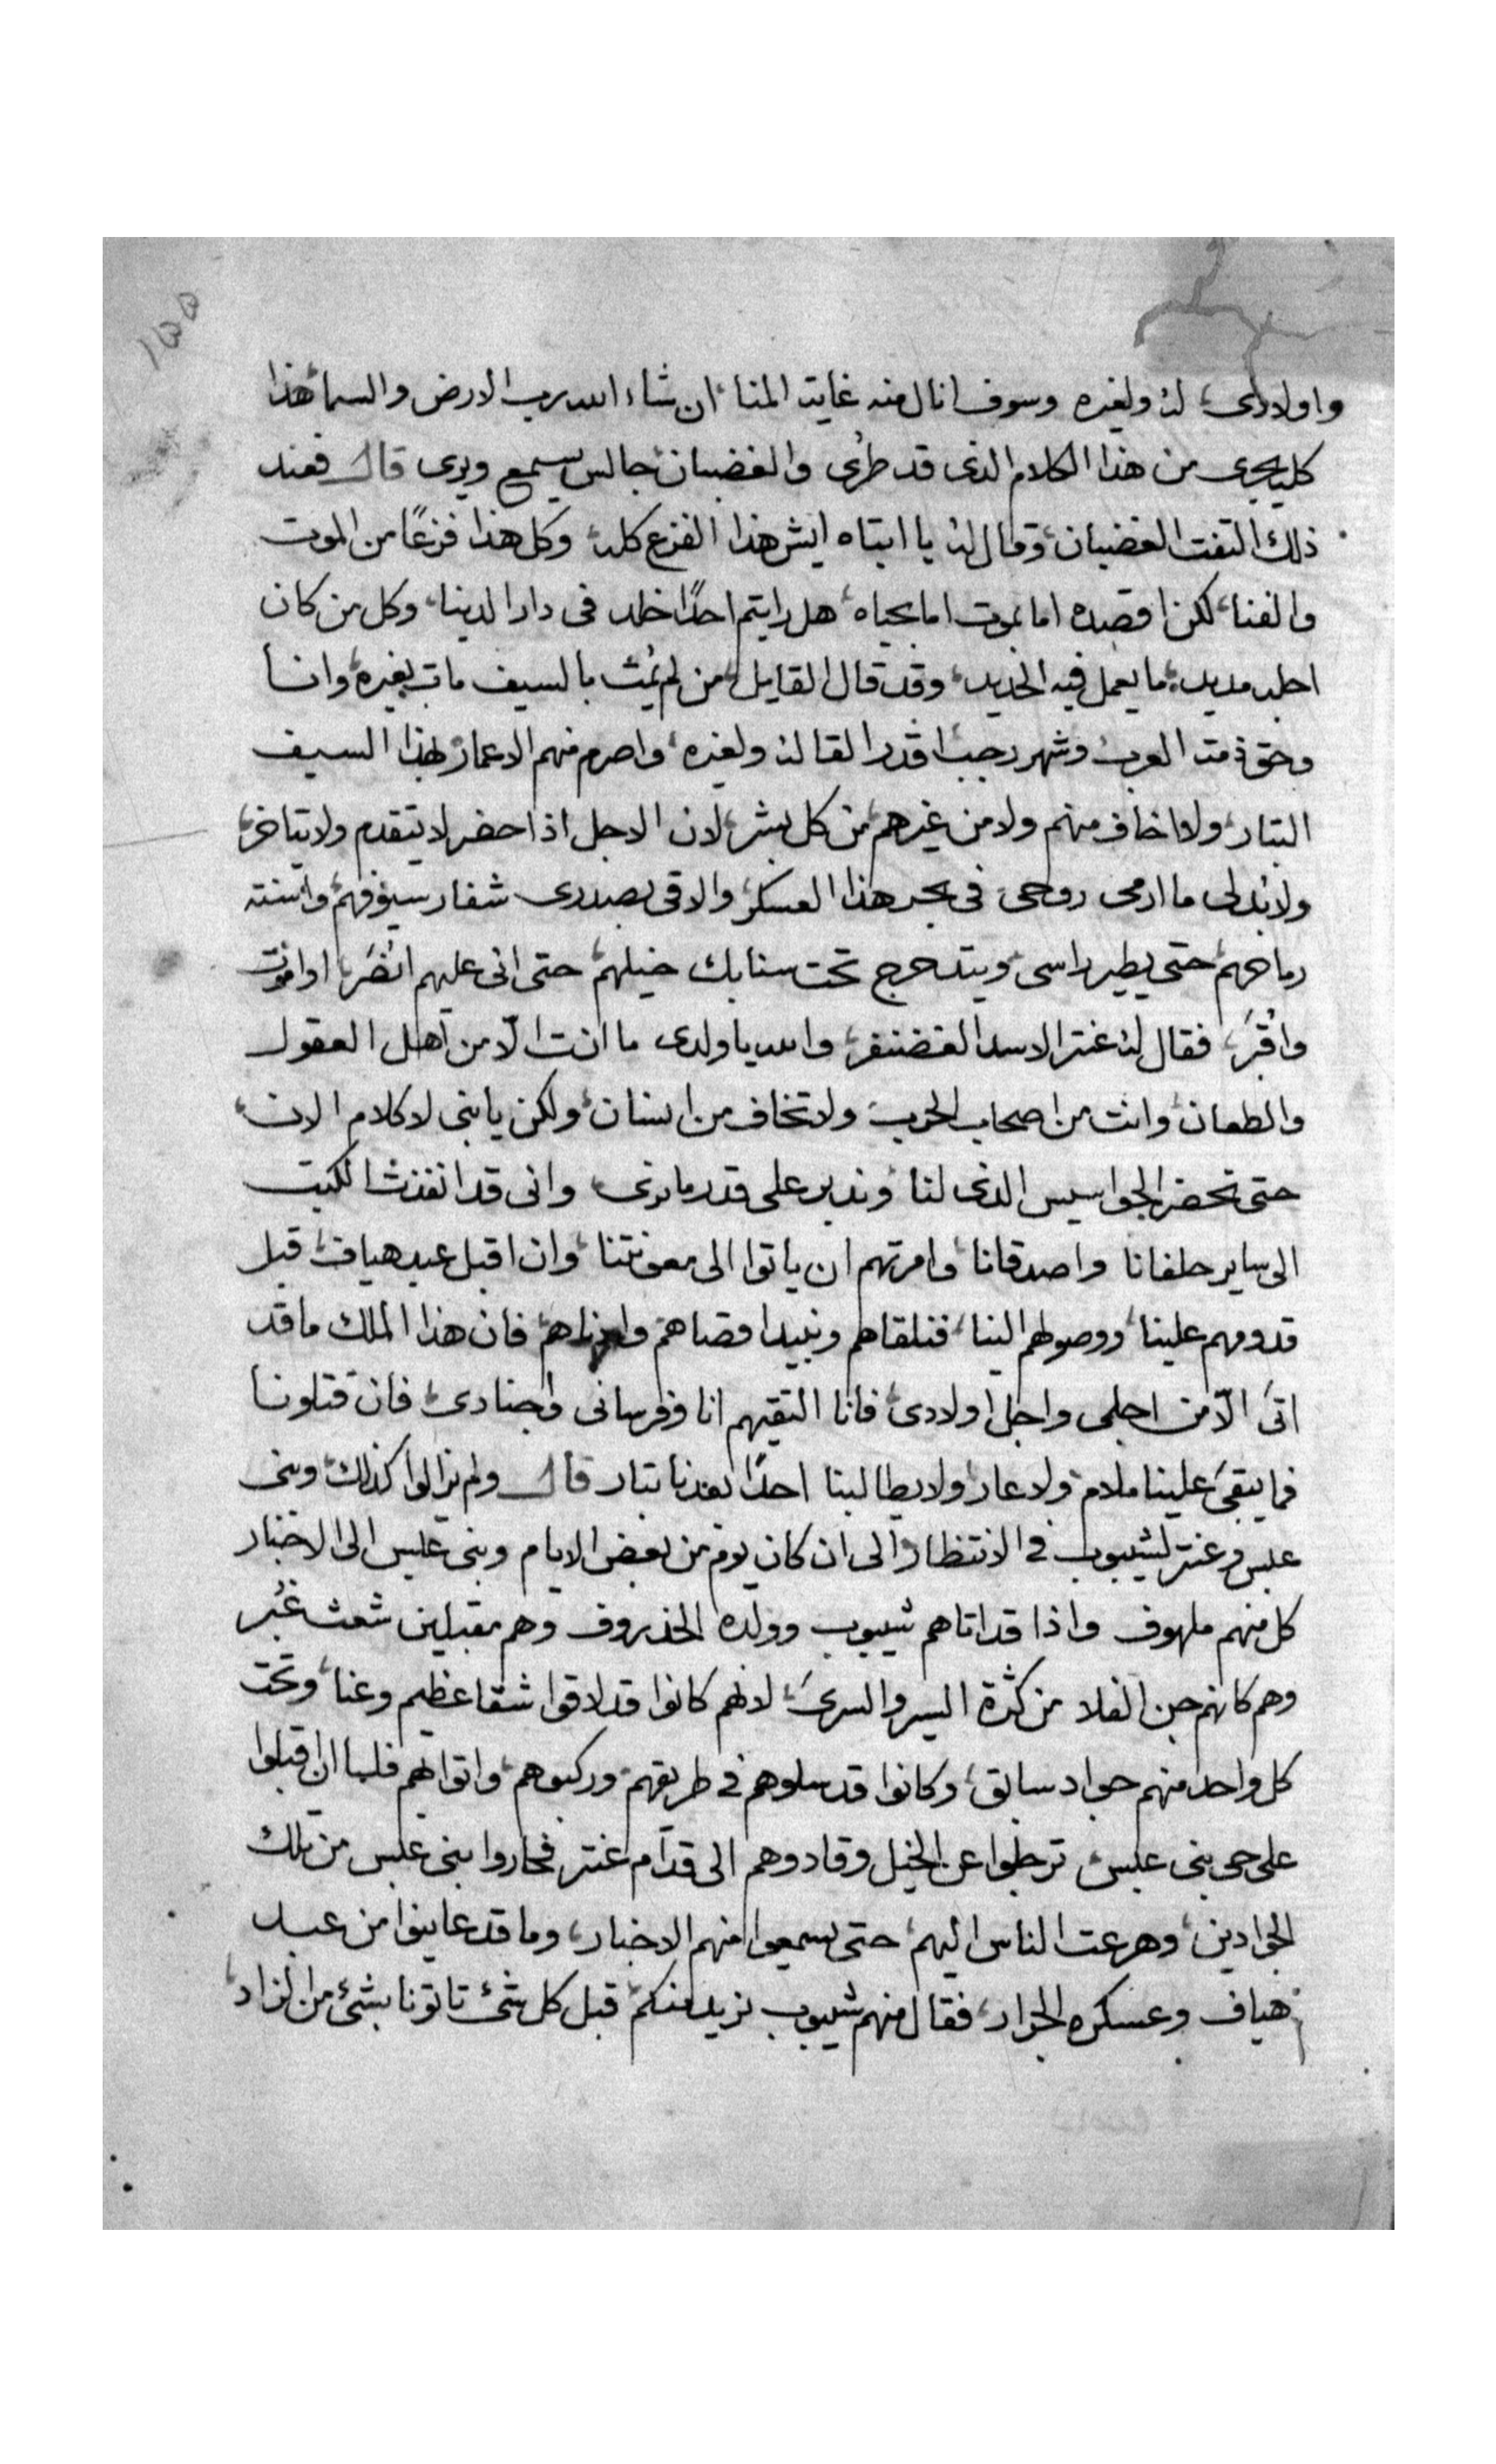 ١٥٥
واولادى، له ولغيره وسوف انال منه غاية المنا، ان شاء الله رب الارض والسما، هذا
كله يجرى من هذا الكلام الذى قد طرى والغضبان، جالس يسمع ويرى قال فعند
ذلك التفت الغضبان، وقال له يا ابتاه ايش هذا الفزع كله، وكل هذا فزعًا من الموت
والفنا، لكن اقصده اما بموت اما بحياه، هل رايتم احدًا خلد فى دار الدنيا، وكل من كان
اجله مديد، ما يعمل فيه الحديد، وقد قال القايل، من لم يمُت بالسيف مات بغيره، وانا
وحق ذمة العرب، وشهر رجب، اقدر القا له ولغيره، واصرم منهم الاعمار، بهذا السيف
البتار، ولا اخاف منهم ولا من غيرهم، من كل بشر، لان الاجل اذا حضر لا يتقدم ولا يتاخر،
ولابُد لى ما ارمى روحى فى بحر هذا العسكر، والاقى بصدرى شفار سيوفهم، واسنة
رماحهم، حتى يطير راسى، ويتدحرج تحت سنابك خيلهم، حتى انى عليهم انصُر، او اموت
واُقبَر، فقال له عنتر الاسد الغضنفر، والله يا ولدى ما انت الّا من اهل العقول
والطعان، وانت من اصحاب الحرب ولا تخاف من انسان، ولكن يا بنى لا كلام الان،
حتى تحضر الجواسيس الذى لنا، وندبر على قدر ما نرى، وانى قد انفذت الكتب
الى ساير حلفانا واصدقانا، وامرتهم ان ياتوا الى معونتنا، وان اقبل عبد هياف، قبل
قدومهم علينا، ووصولهم الينا، فنلقاهم ونبيد اقصاهم وادناهم، فان هذا الملك ما قد
اتى الّا من اجلى واجل اولادى، فانا التقيهم انا وفرسانى واجنادى، فان قتلونا
فما يبقى علينا ملام، ولا عار، ولا يطالبنا احدًا بعدنا بتار قال ولم يزالوا كذلك، وبنى
عبس وعنتر لشيبوب فى الانتظار، الى ان كان يوم من بعض الايام وبنى عبس الى الاخبار
كل منهم ملهوف واذا قد اتاهم شيبوب وولده الخذروف وهم مقبلين شعث غُبُر
وهم كانهم جن الفلا من كثرة السير والسرى، لانهم كانوا قد لاقوا شقا عظيم وعنا، وتحت
كل واحد منهم جواد سابق، وكانوا قد سلوهم فى طريقهم، وركبوهم، واتوا بهم فلما ان اقبلوا
على حى بنى عبس، ترجلوا عن الخيل وقادوهم الى قدّام عنتر فحاروا بنى عبس من تلك
الجوادين، وهرعت الناس اليهم، حتى يسمعوا منهم الاخبار، وما قد عاينوا من عبد
هياف وعسكره الجرار، فقال منهم شيبوب نريد منكم، قبل كل شئ تاتونا بشئ من الزاد،